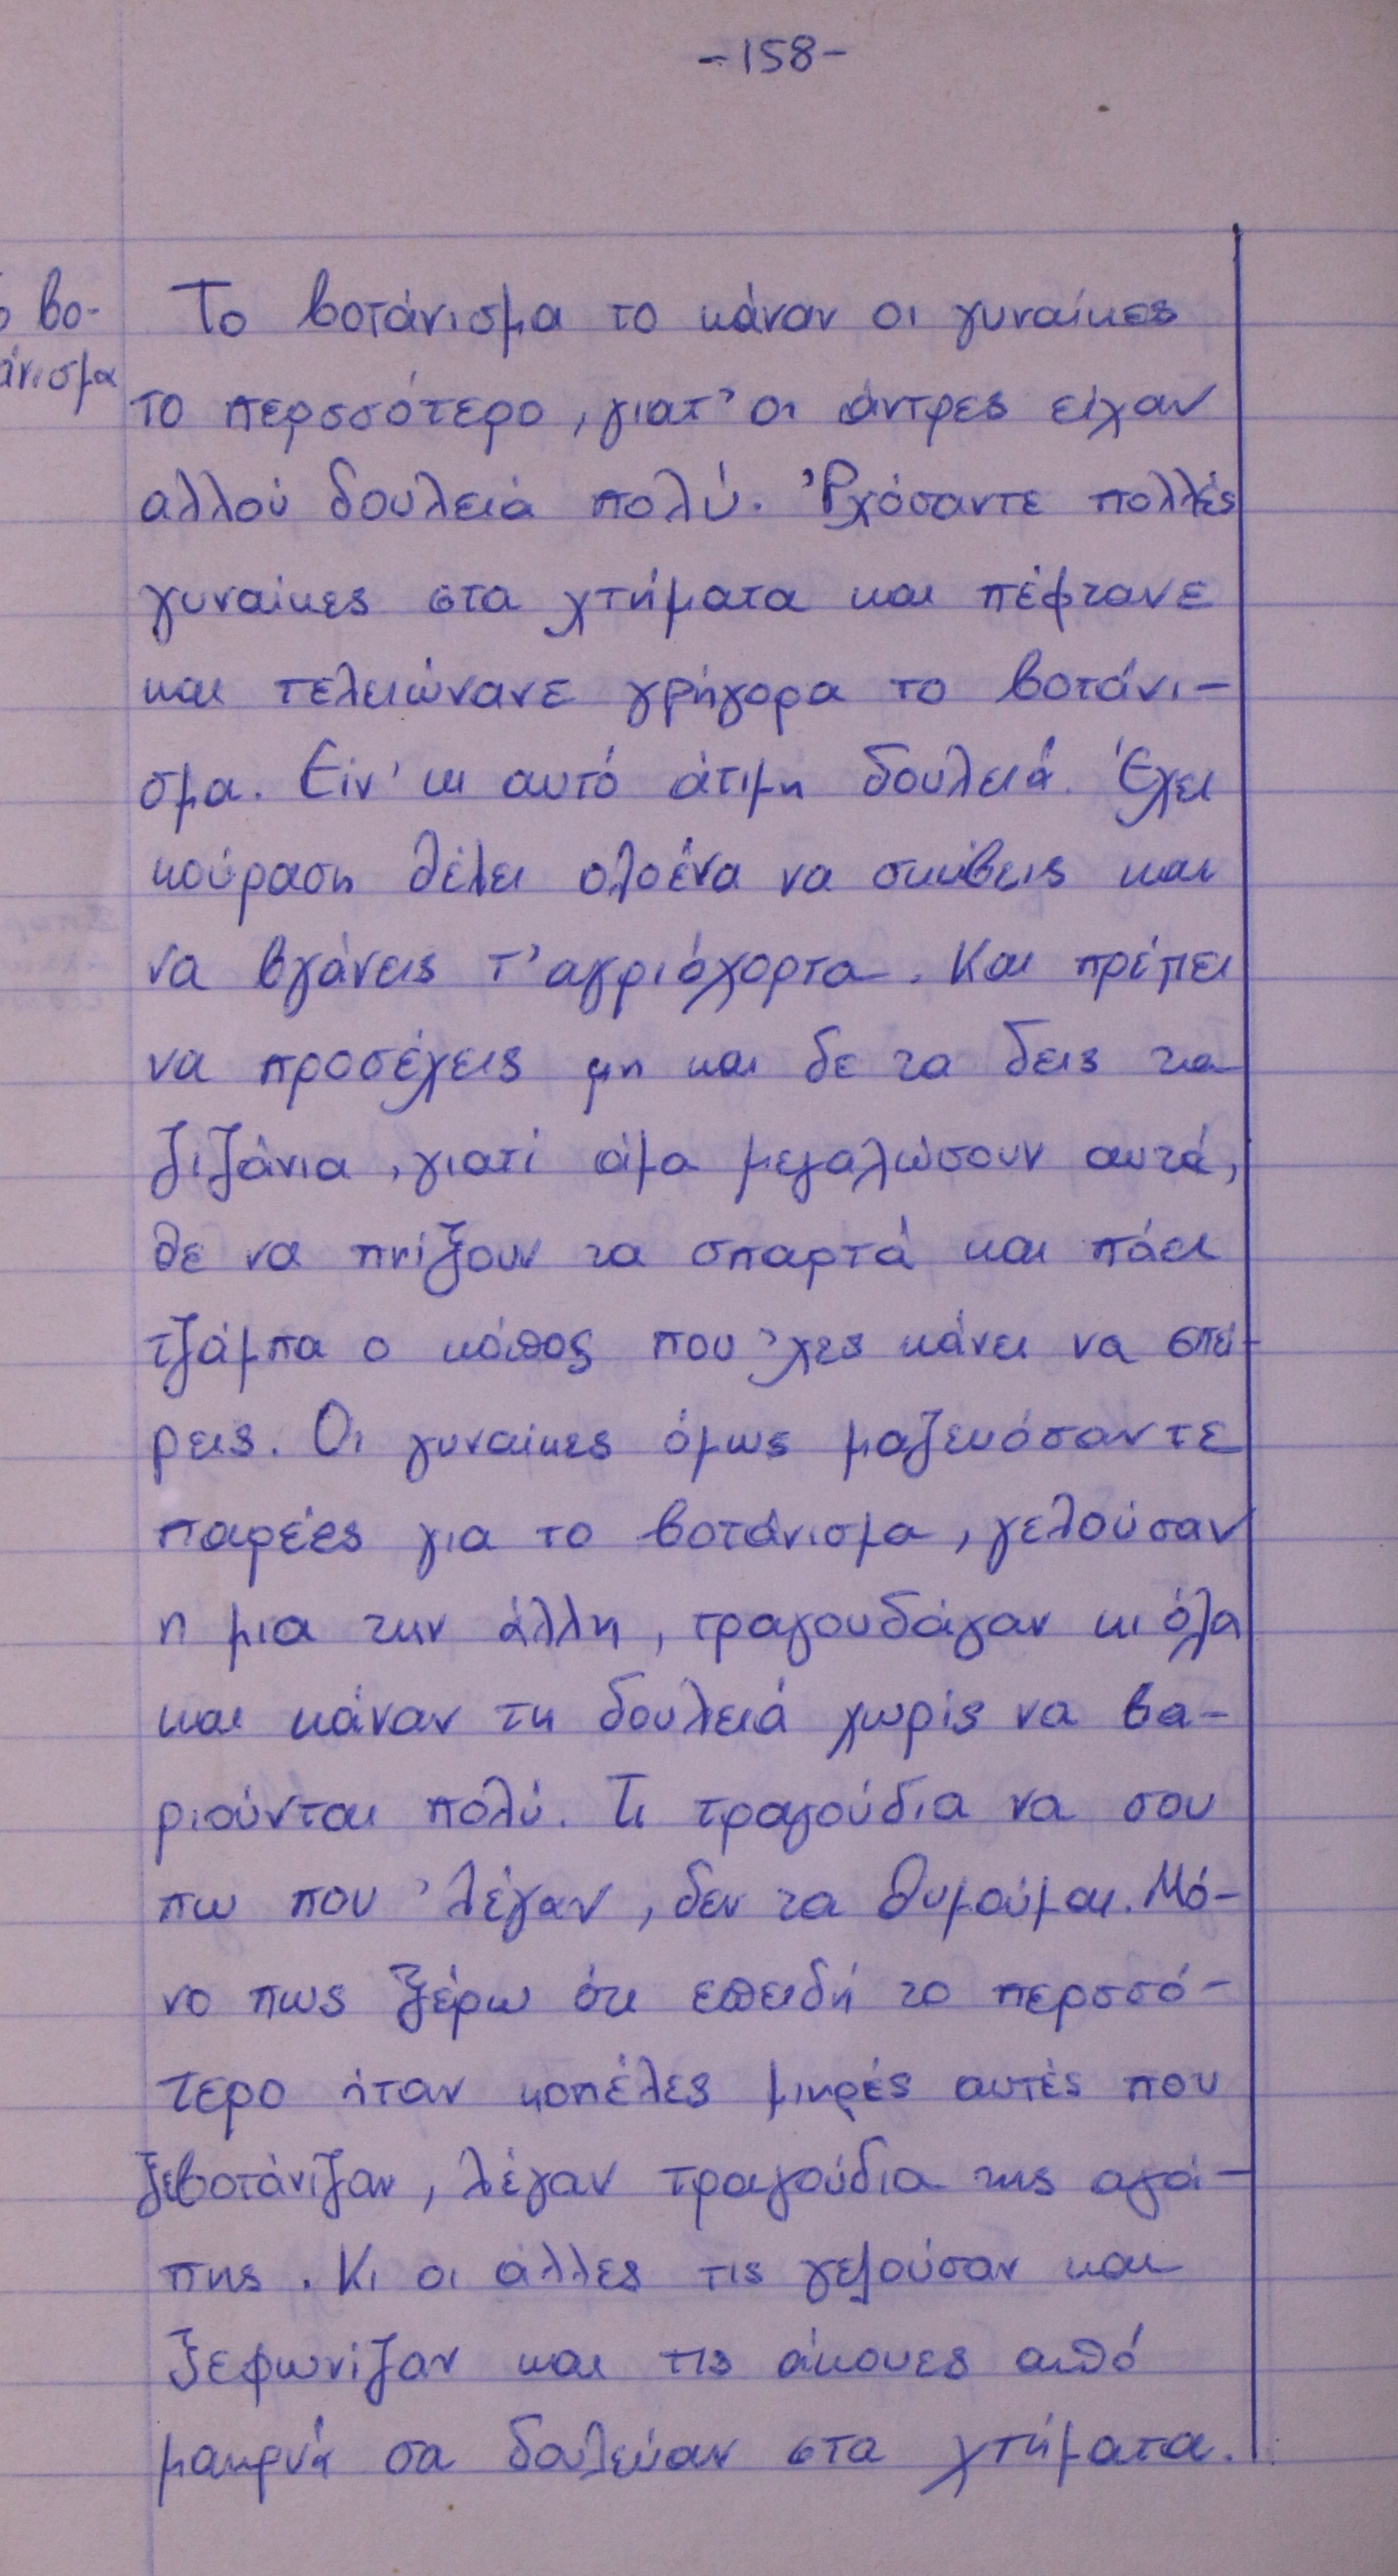 -158-
ο βο-
άνισμα
Το βοτάνισμα το κάναν οι γυναίκες
το περσσότερο, γιατ' οι άντρες είχαν
αλλού δουλειά πολύ. 'Ρχόσαντε πολλές
γυναίκες στα χτήματα και πέφτανε
και τελειώνανε γρήγορα το βοτάνι-
σμα. Είν' κι αυτό άτιμη δουλειά. Έχει
κούραση θέλει ολοένα να σκύβεις και
να βγάνεις τ' αγριόχορτα. Και πρέπει
να προσέχεις μη και δε τα δεις τα
ζιζάνια, γιατί άμα μεγαλώσουν αυτά,
θε να πνίξουν τα σπαρτά και πάει
τζάμπα ο κόπος που 'χες κάνει να σπεί-
ρεις. Οι γυναίκες όμως μαζευόσαντε
παρέες για το βοτάνισμα, γελούσαν
η μια την άλλη, τραγουδάγαν κι όλα
και κάναν τη δουλειά χωρίς να βα-
ριούνται πολύ. Τι τραγούδια να σου
πω που 'λέγαν, δεν τα θυμούμαι. Μό-
νο πως ξέρω ότι επειδή το περσσό-
τερο ήταν κοπέλες μικρές αυτές που
ξεβοτάνιζαν, λέγαν τραγούδια της αγά-
πης. Κι οι άλλες τις γελούσαν και
ξεφωνίζαν και τις άκουες από
μακρυά σα δουλεύαν στα χτήματα.